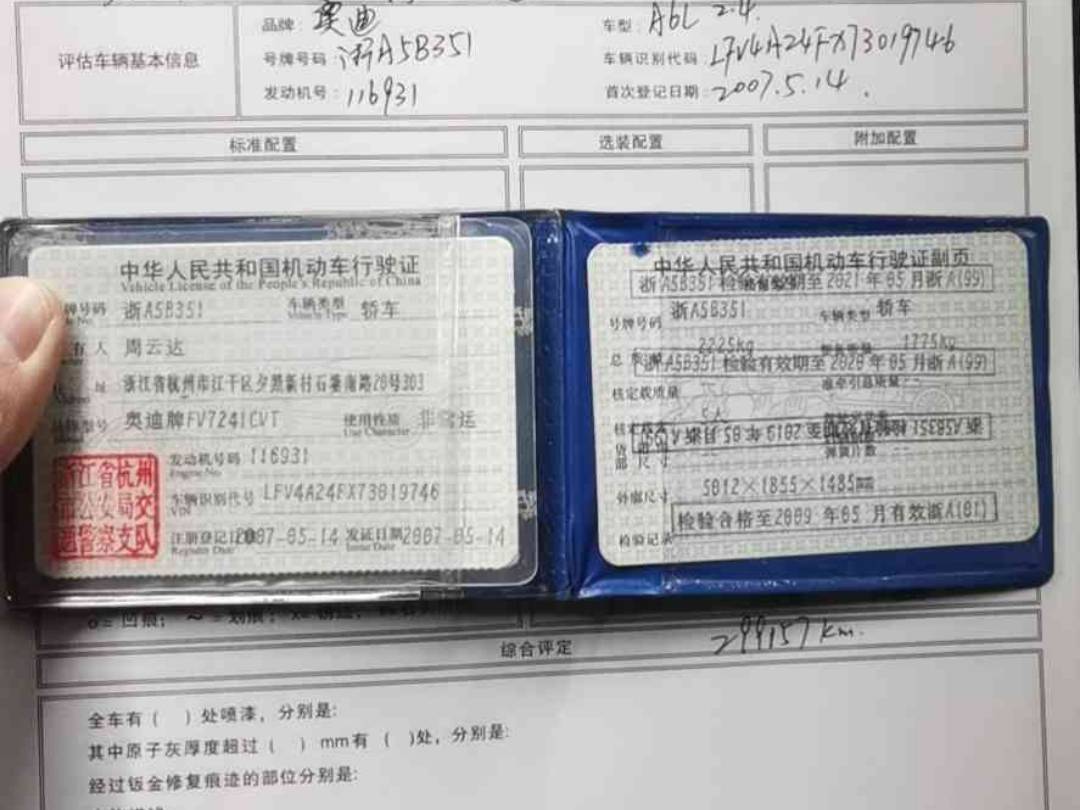 评估车辆基本信息
品牌：奥迪
车型：A6L 2.4.
号牌号码：浙A5B351
车辆识别代码：LFV4A24FX73019746
发动机号：116931
首次登记日期：2007.5.14.
标准配置
选装配置
附加配置
中华人民共和国机动车行驶证
Vehicle License of the People's Republic of China
号码 浙A5B351 车辆类型 轿车
Vehicle Type
有人 周云达
址 浙江省杭州市江干区夕照新村石 南路20号303
型号 奥迪牌FV7241CVT 使用性质 非营运
Use Character
发动机号码 116931
Engine No.
车辆识别代号 LFV4A24FX73019746
VIN
注册登记日期 2007-05-14 发证日期 2007-05-14
Register Date Issue Date
浙江省杭州
市公安局交
通警察支队
中华人民共和国机动车行驶证副页
浙A5B351 检验有效期至 2021年05月浙A(99)
号牌号码 浙A5B351 车辆类型 轿车
总质量 2225kg 1775kg
浙A5B351 检验有效期至 2020年05月浙A(99)
核定载质量 准牵引总质量 --
浙A5B351 检验有效期至 2019年05月浙A(99)
外廓尺寸 5012×1855×1485mm
检验合格至2009年05月有效浙A(01)
检验记录
凹痕；
综合评定
299157km.
全车有（ ）处喷漆，分别是:
其中原子灰厚度超过（ ）mm有（ )处，分别是:
经过钣金修复痕迹的部位分别是: